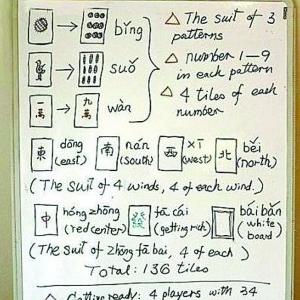 bǐng
suǒ
一萬 九萬 wàn
The suit of 3
patterns
number 1-9
in each pattern
4 tiles of each
number
東 dōng (east) 南 nán (south) 西 xī (west) 北 běi (north)
(The suit of 4 winds, 4 of each wind.)
中 hóng zhōng (red center) 發 fā cái (getting rich) bái bǎn (white board)
(The suit of zhōng fā bái, 4 of each)
Total: 136 tiles
Getting ready: 4 players with 34